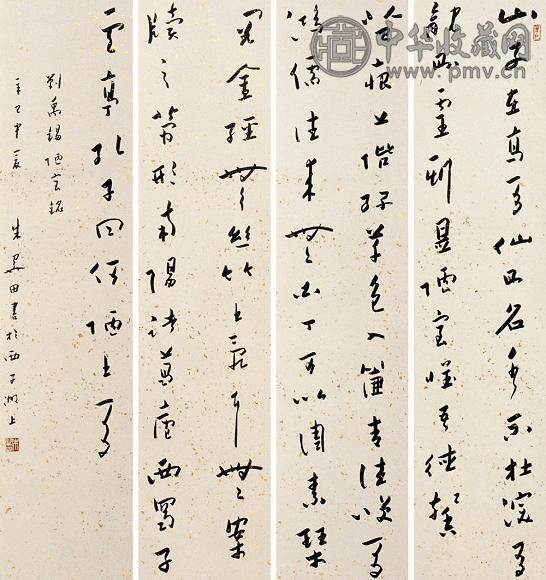 山不在高有仙則名水不在深有
龍則靈斯是陋室惟吾德馨
苔痕上階綠草色入簾青談笑有
鴻儒往來無白丁可以調素琴
閱金經無絲竹之亂耳無案
牘之勞形南陽諸葛廬西蜀子
雲亭孔子曰何陋之有
劉禹錫陋室銘
辛巳中夏 朱關田書於西子湖上
中华收藏网
www.pmv.cn